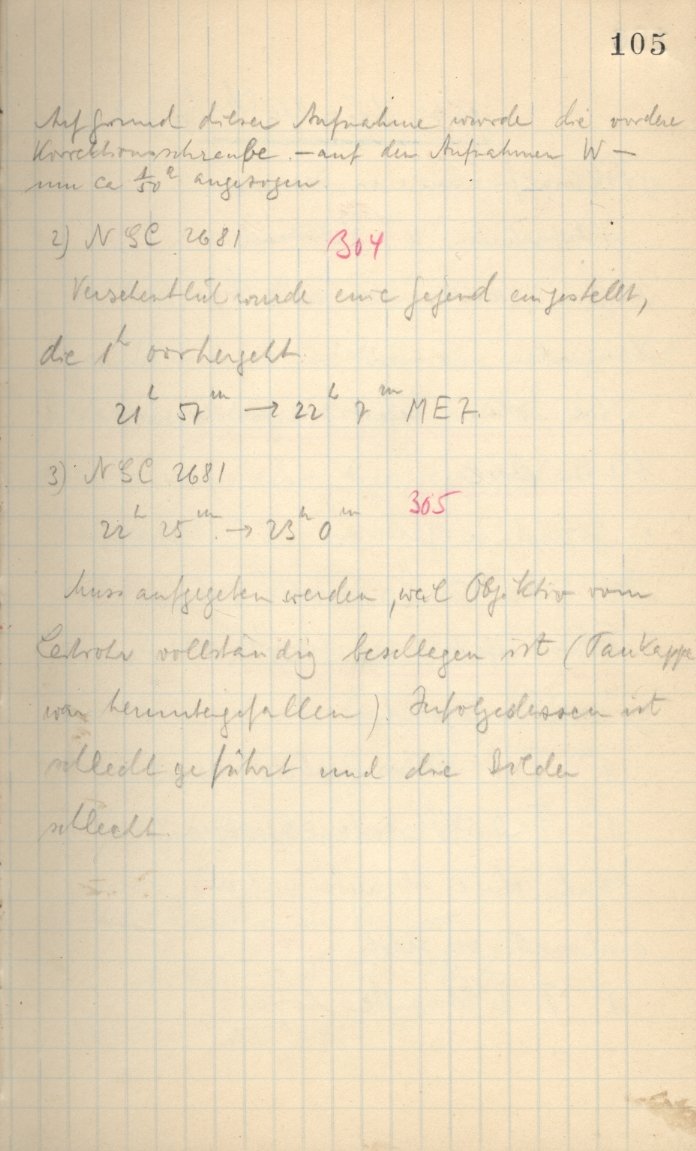 105
Auf Grund dieser Aufnahme wurde die vordere
Korrektionsschraube – auf den Aufnahmen W –
um ca 1/50 angezogen.
2) NGC 2681 304
Versehentlich wurde eine Gegend eingestellt,
die 1h vorhergeht
21h 57m → 22h 7m MEZ.
3) NGC 2681
305
22h 25m → 23h 0m
Muss aufgegeben werden, weil Objektiv vom
Leitrohr vollständig beschlagen ist (Taukappe
war heruntergefallen). Infolgedessen ist
schlecht geführt und die Bilder
schlecht.